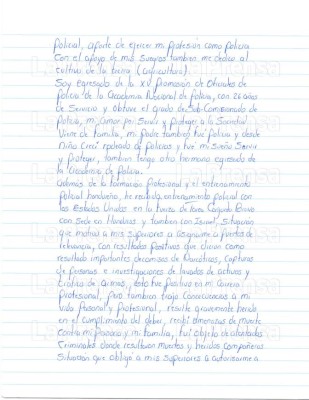 Policial, aparte de ejercer mi profesión como Policía
Con el apoyo de mis suegros también me dedico al
cultivo de la tierra (agricultura).
Soy egresado de la XV promoción de Oficiales de
Policía de la Academia Nacional de Policía, con 26 años
de Servicio y obtuve el grado de Sub-Comisionado de
Policía, mi amor por Servir y Proteger a la Sociedad
Viene de familia, mi padre también fue Policía y desde
Niño Crecí rodeado de policías y fue mi sueño Servir
y Proteger, también tengo otro hermano egresado de
la Academia de Policía.
Además de la formación profesional y el entrenamiento
Policial hondureño, he recibido entrenamiento policial con
los Estados Unidos en la Fuerza de Tarea Conjunta Bravo
con Sede en Honduras y también con Israel, Situación
que motivó a mis Superiores a asignarme a puestos de
relevancia, con resultados positivos que dieron como
resultado importantes decomisos de Narcóticos, Capturas
de personas e investigaciones de lavados de activos y
tráfico de armas, esto fue positivo en mi Carrera
Profesional, pero también trajo Consecuencias a mi
vida Personal y Profesional, resulté gravemente herido
en el cumplimiento del deber, recibí amenazas de muerte
contra mi persona y mi familia, fui objeto de atentados
Criminales donde resultaron muertos y heridos compañeros
Situación que obligó a mis Superiores a autorizarme a
La Prensa